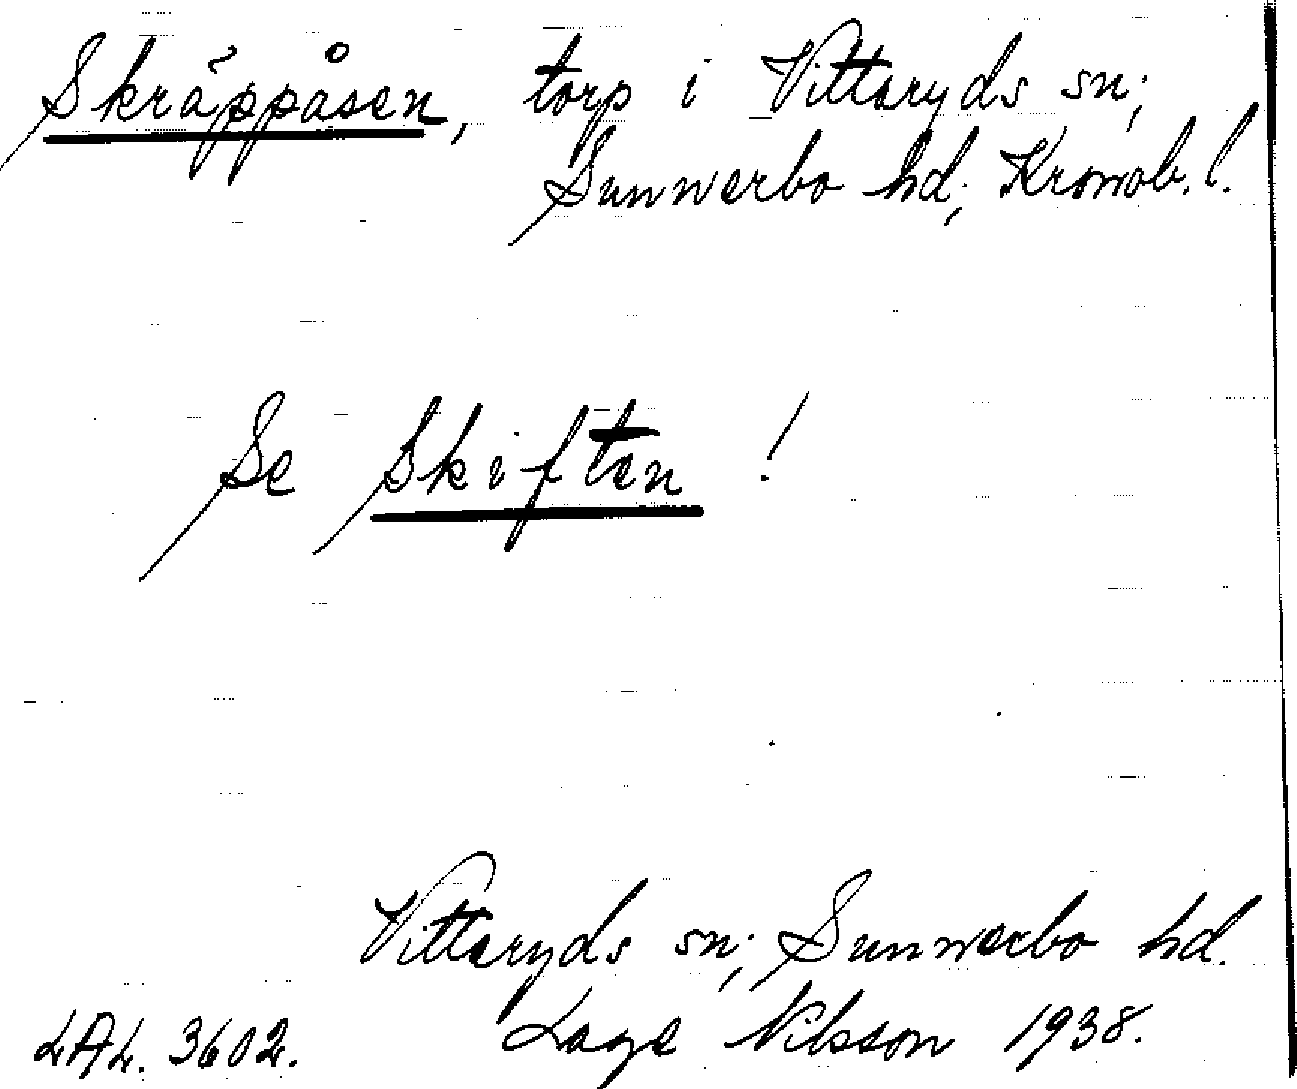 Skräppåsen, torp i Vittaryds sn;
Sunnerbo hd; Kronob. l.
Se Skiften!
Vittaryds sn; Sunnerbo hd.
LAL. 3602. Lage Nilsson 1938.